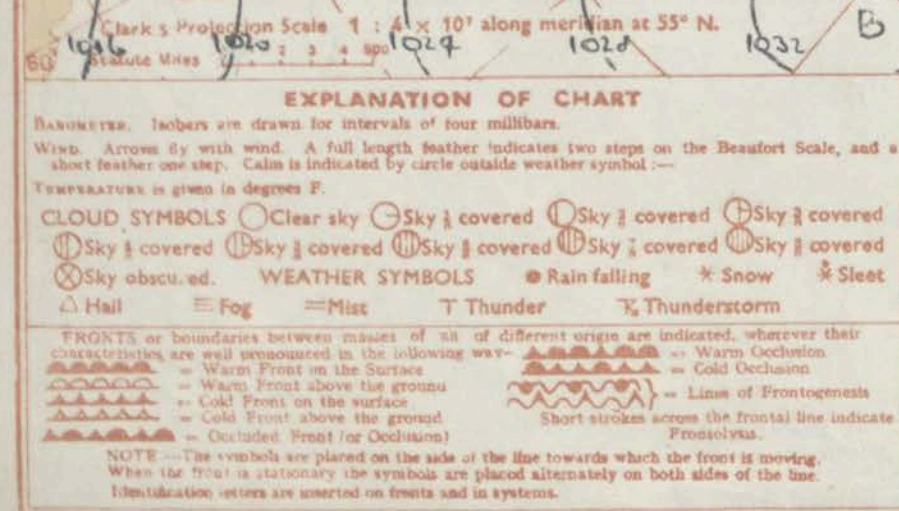 Clark's Projection Scale 1 : 4 × 10⁷ along meridian at 55° N.
1016 1020 1024 1028 1032 B
60 Statute Miles 2 3 4 500
EXPLANATION OF CHART
BAROMETER. Isobars are drawn for intervals of four millibars.
WIND. Arrows fly with wind. A full length feather indicates two steps on the Beaufort Scale, and a
short feather one step. Calm is indicated by circle outside weather symbol :—
TEMPERATURE is given in degrees F.
CLOUD SYMBOLS Clear sky Sky covered Sky covered Sky covered
Sky covered Sky covered Sky covered Sky covered Sky covered
Sky obscured. WEATHER SYMBOLS Rain falling Snow Sleet
Hail Fog Mist Thunder Thunderstorm
FRONTS or boundaries between masses of air of different origin are indicated, wherever their
characteristics are well pronounced in the following way— = Warm Occlusion
= Warm Front on the Surface = Cold Occlusion
= Warm Front above the ground
= Cold Front on the surface = Lines of Frontogenesis
= Cold Front above the ground Short strokes across the frontal line indicate
= Occluded Front (or Occlusion) Frontolysis.
NOTE—The symbols are placed on the side of the line towards which the front is moving.
When the front is stationary the symbols are placed alternately on both sides of the line.
Identification letters are inserted on fronts and in systems.